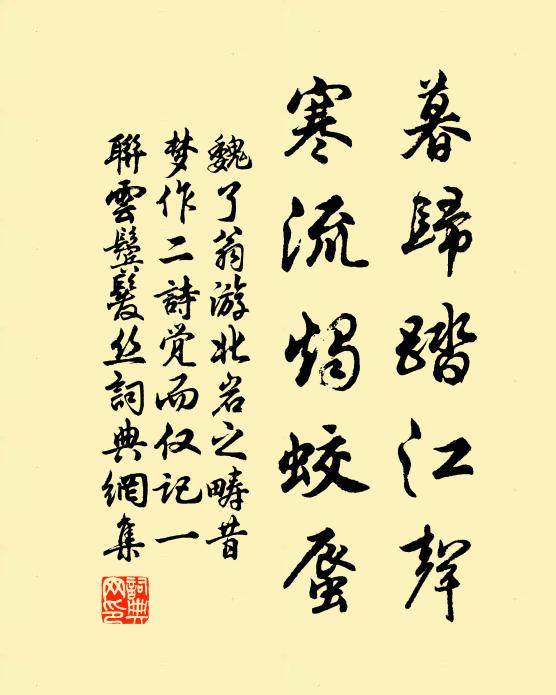 暮歸踏江聲
寒流燭蛟蜃
魏了翁游北岩之畴昔
梦作二詩觉而仅记一
聯雲鬟鬟丝詞典網集
詞典网印